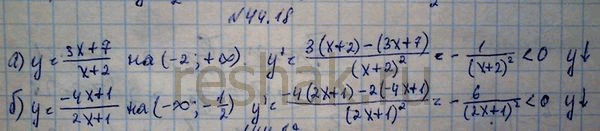 №44.18
а) y = \frac{3x+7}{x+2} на (-2; +∞) y' = \frac{3(x+2)-(3x+7)}{(x+2)^2} = -\frac{1}{(x+2)^2} < 0 y↓
б) y = \frac{-4x+1}{2x+1} на (-∞; -\frac{1}{2}) y' = \frac{-4(2x+1)-2(-4x+1)}{(2x+1)^2} = -\frac{6}{(2x+1)^2} < 0 y↓